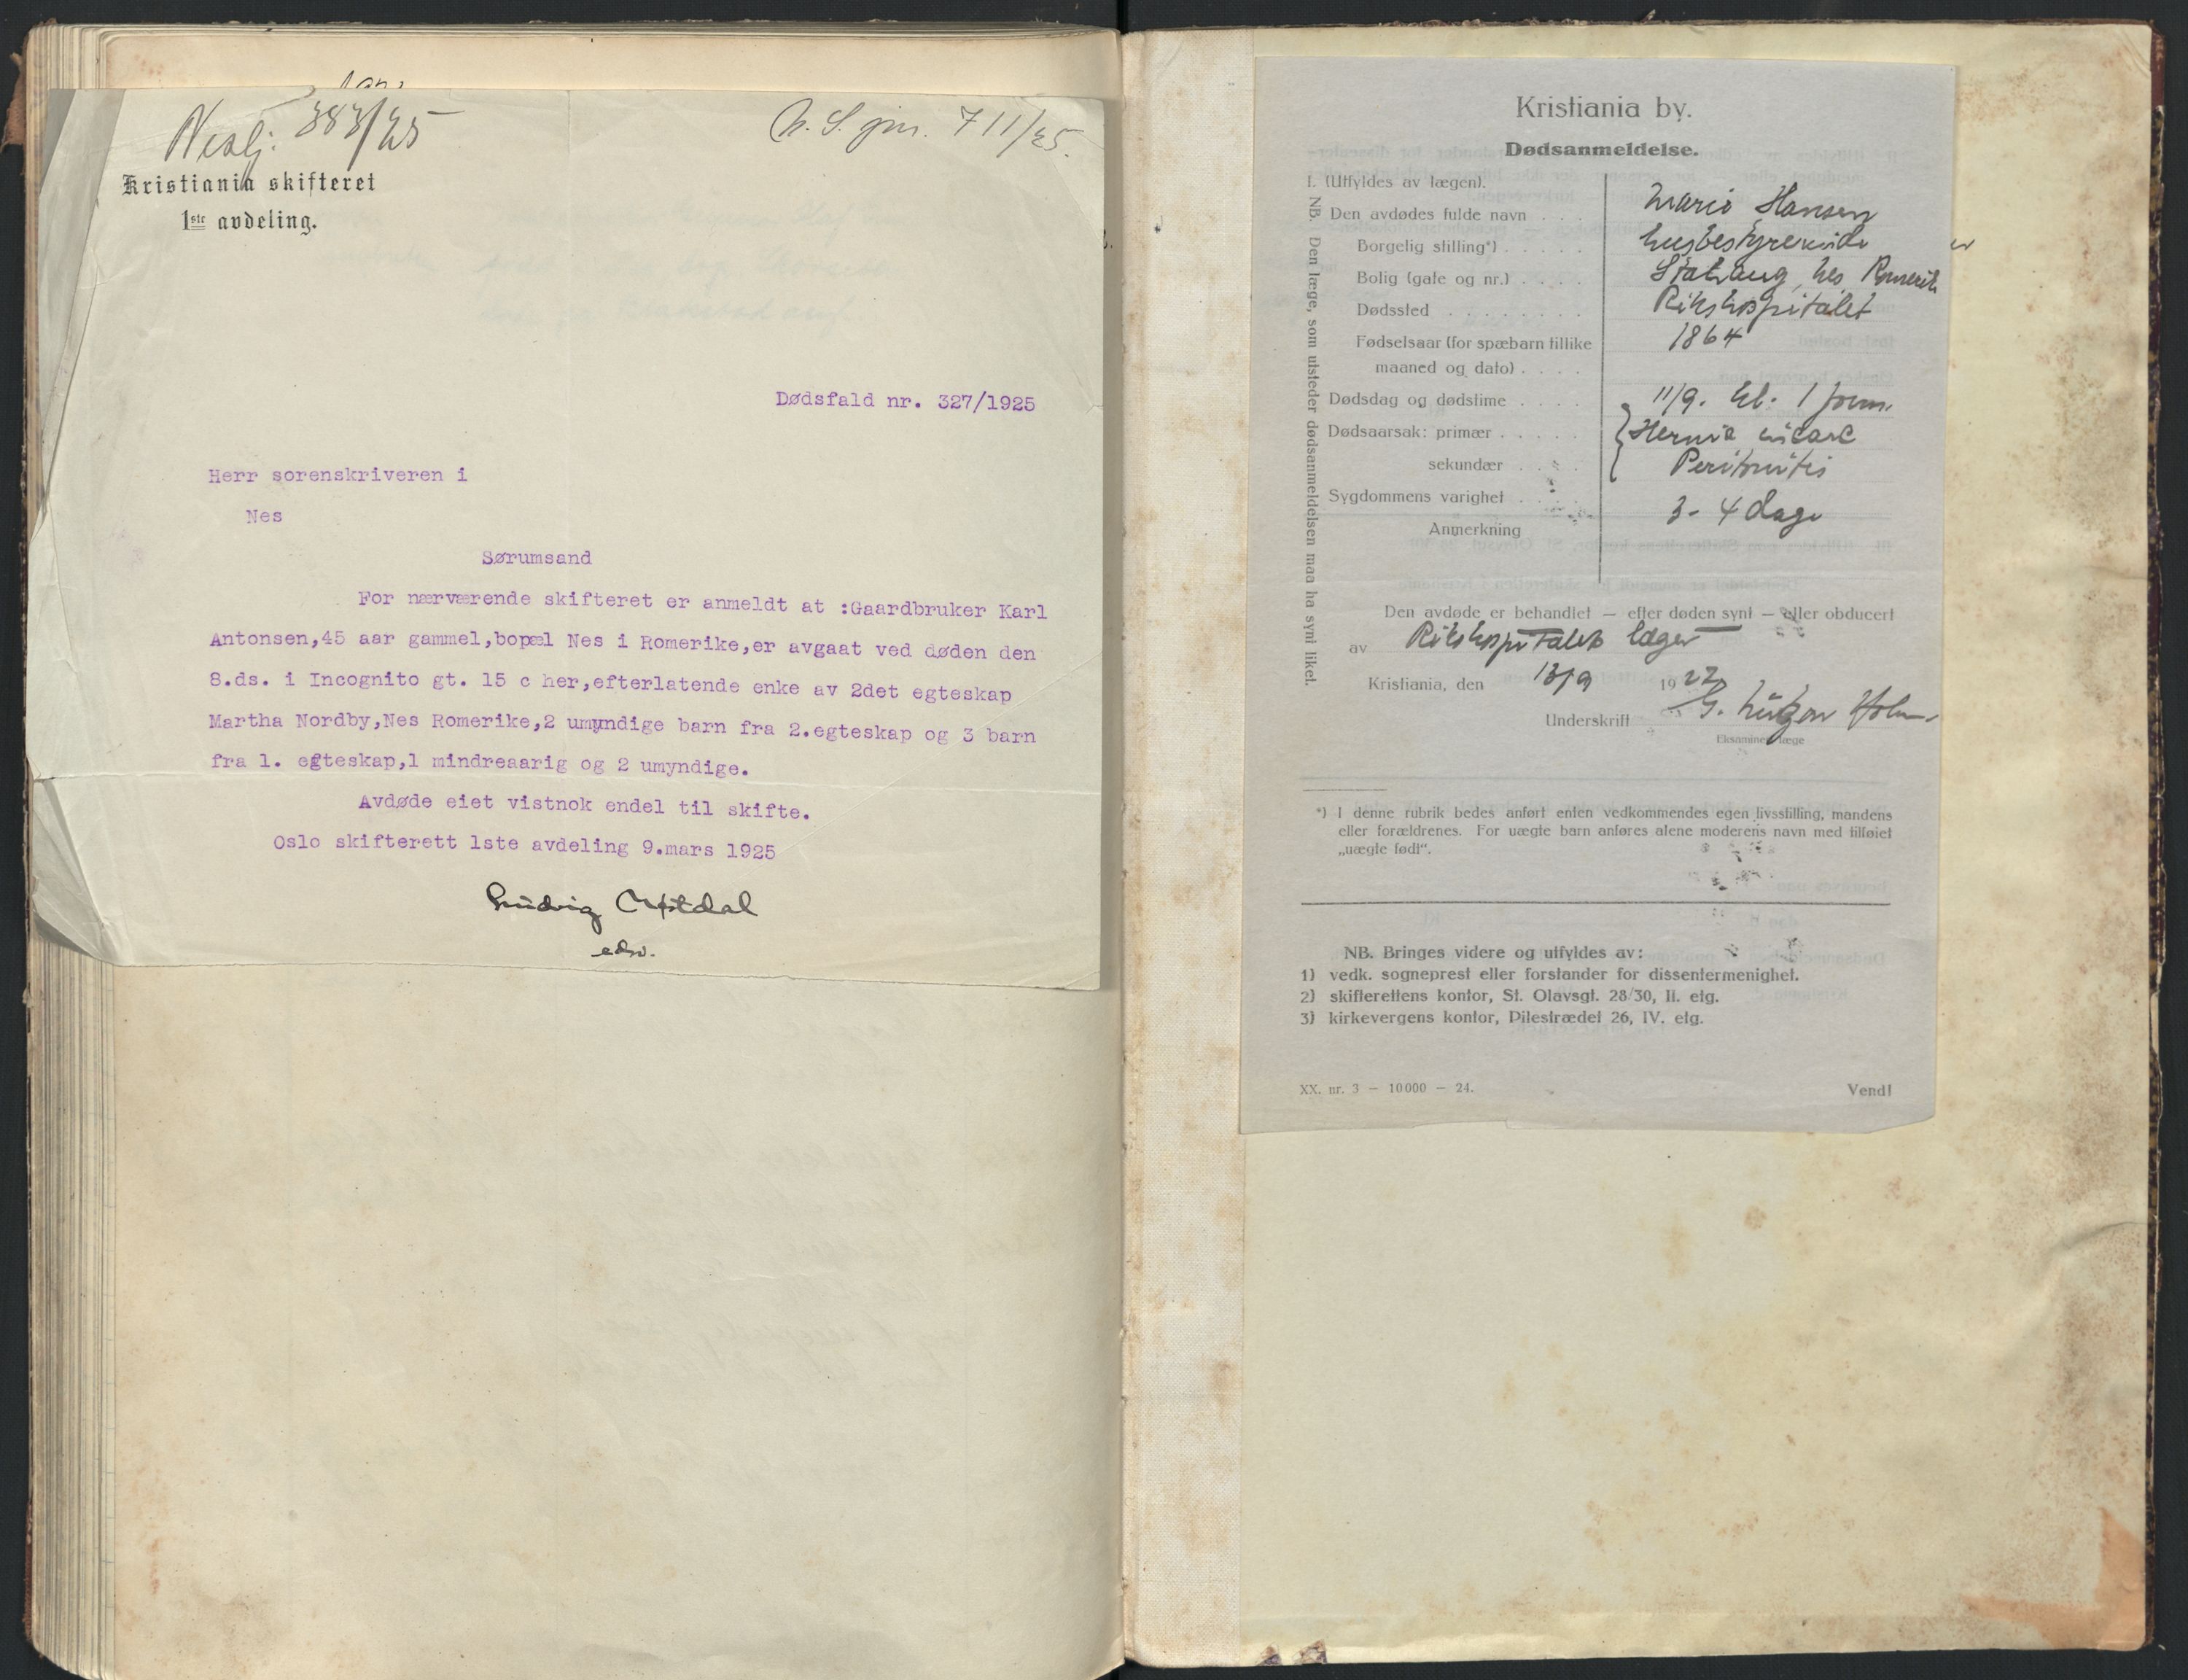 Neslj. 383/25
N. S. jnr. 711/25.
Kristiania skifteret
1ste avdeling.
Dødsfald nr. 327/1925
Herr sorenskriveren i
Nes
Sørumsand
For nærværende skifteret er anmeldt at :Gaardbruker Karl
Antonsen,45 aar gammel,bopæl Nes i Romerike,er avgaat ved døden den
8.ds. i Incognito gt. 15 c her,efterlatende enke av 2det egteskap
Martha Nordby,Nes Romerike,2 umyndige barn fra 2.egteskap og 3 barn
fra 1. egteskap,1 mindreaarig og 2 umyndige.
Avdøde eiet vistnok endel til skifte.
Oslo skifterett 1ste avdeling 9.mars 1925
Ludvig
edsv.
Kristiania by.
Dødsanmeldelse.
I. (Utfyldes av lægen).
NB. Den læge, som utsteder dødsanmeldelsen maa ha synt liket.
Den avdødes fulde navn . . . Marie Hansen
Borgelig stilling*) . . . . . husbestyrerinde
Bolig (gate og nr.) . . . . Nes Romerik
Dødssted . . . . . . . . Rikshospitalet
Fødselsaar (for spæbarn tillike 1864
maaned og dato) . . . .
Dødsdag og dødstime . . . . 11/9. kl. 1 form.
Dødsaarsak: primær . . . . . Hernia incarc
sekundær . . . . Peritonitis
Sygdommens varighet . . . . 3-4 dage
Anmerkning
Den avdøde er behandlet — efter døden synt — eller obducert
av Rikshospitalets læger
Kristiania, den 13/9 19
Underskrift G. Lützow Holm
Eksaminert læge
*) I denne rubrik bedes anført enten vedkommendes egen livsstilling, mandens
eller forældrenes. For uægte barn anføres alene moderens navn med tilføiet
„uægte født“.
NB. Bringes videre og utfyldes av:
1) vedk. sogneprest eller forstander for dissentermenighet.
2) skifterettens kontor, St. Olavsgt. 28/30, II. etg.
3) kirkevergens kontor, Pilestrædet 26, IV. etg.
XX. nr. 3 — 10000 — 24.
Vend!